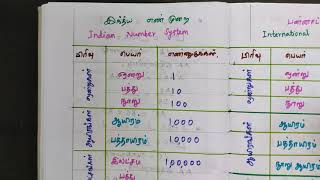 இந்திய எண் முறை
Indian Number System
பிரிவு பெயர் எண்ணுருக்கள்
ஒன்றுகள்
ஒன்று 1
பத்து 10
நூறு 100
ஆயிரங்கள்
ஆயிரம் 1000
பத்தாயிரம் 10000
இலட்சம் 1,00,000
பத்து
பன்னாட்
International
பிரிவு பெயர்
ஒன்றுகள்
ஒன்று
பத்து
நூறு
ஆயிரங்கள்
ஆயிரம்
பத்தாயிரம்
நூறு ஆயிரம்